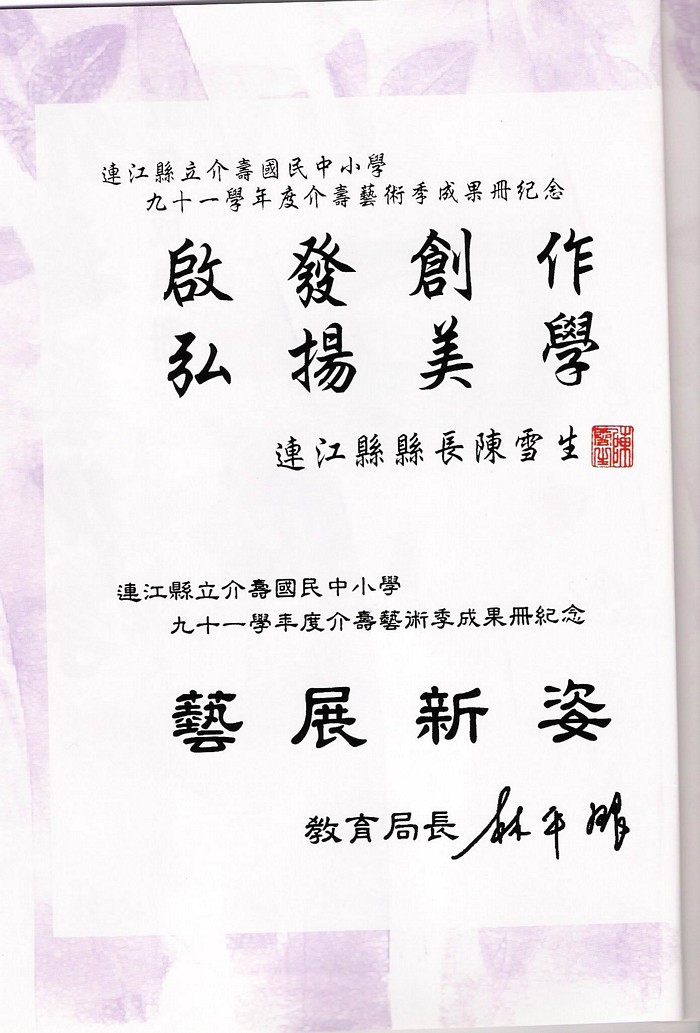 連江縣立介壽國民中小學
九十一學年度介壽藝術季成果冊紀念
啟發創作
弘揚美學
連江縣縣長陳雪生
陳雪生
連江縣立介壽國民中小學
九十一學年度介壽藝術季成果冊紀念
藝展新姿
教育局長 林平